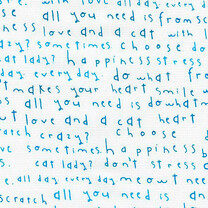 with love and a cat with l
all you need is from sc
ness love and a cat with l
azy? sometimes choose do
cat lady? happiness stress
day every day. do what from
t makes your heart smile w
s all you need is downat
ut love and a cat heart
ratch crazy? choose
ve sometimes happiness
s. cat lady? don't stress
e. all day every day meout need
scratch all you need is an